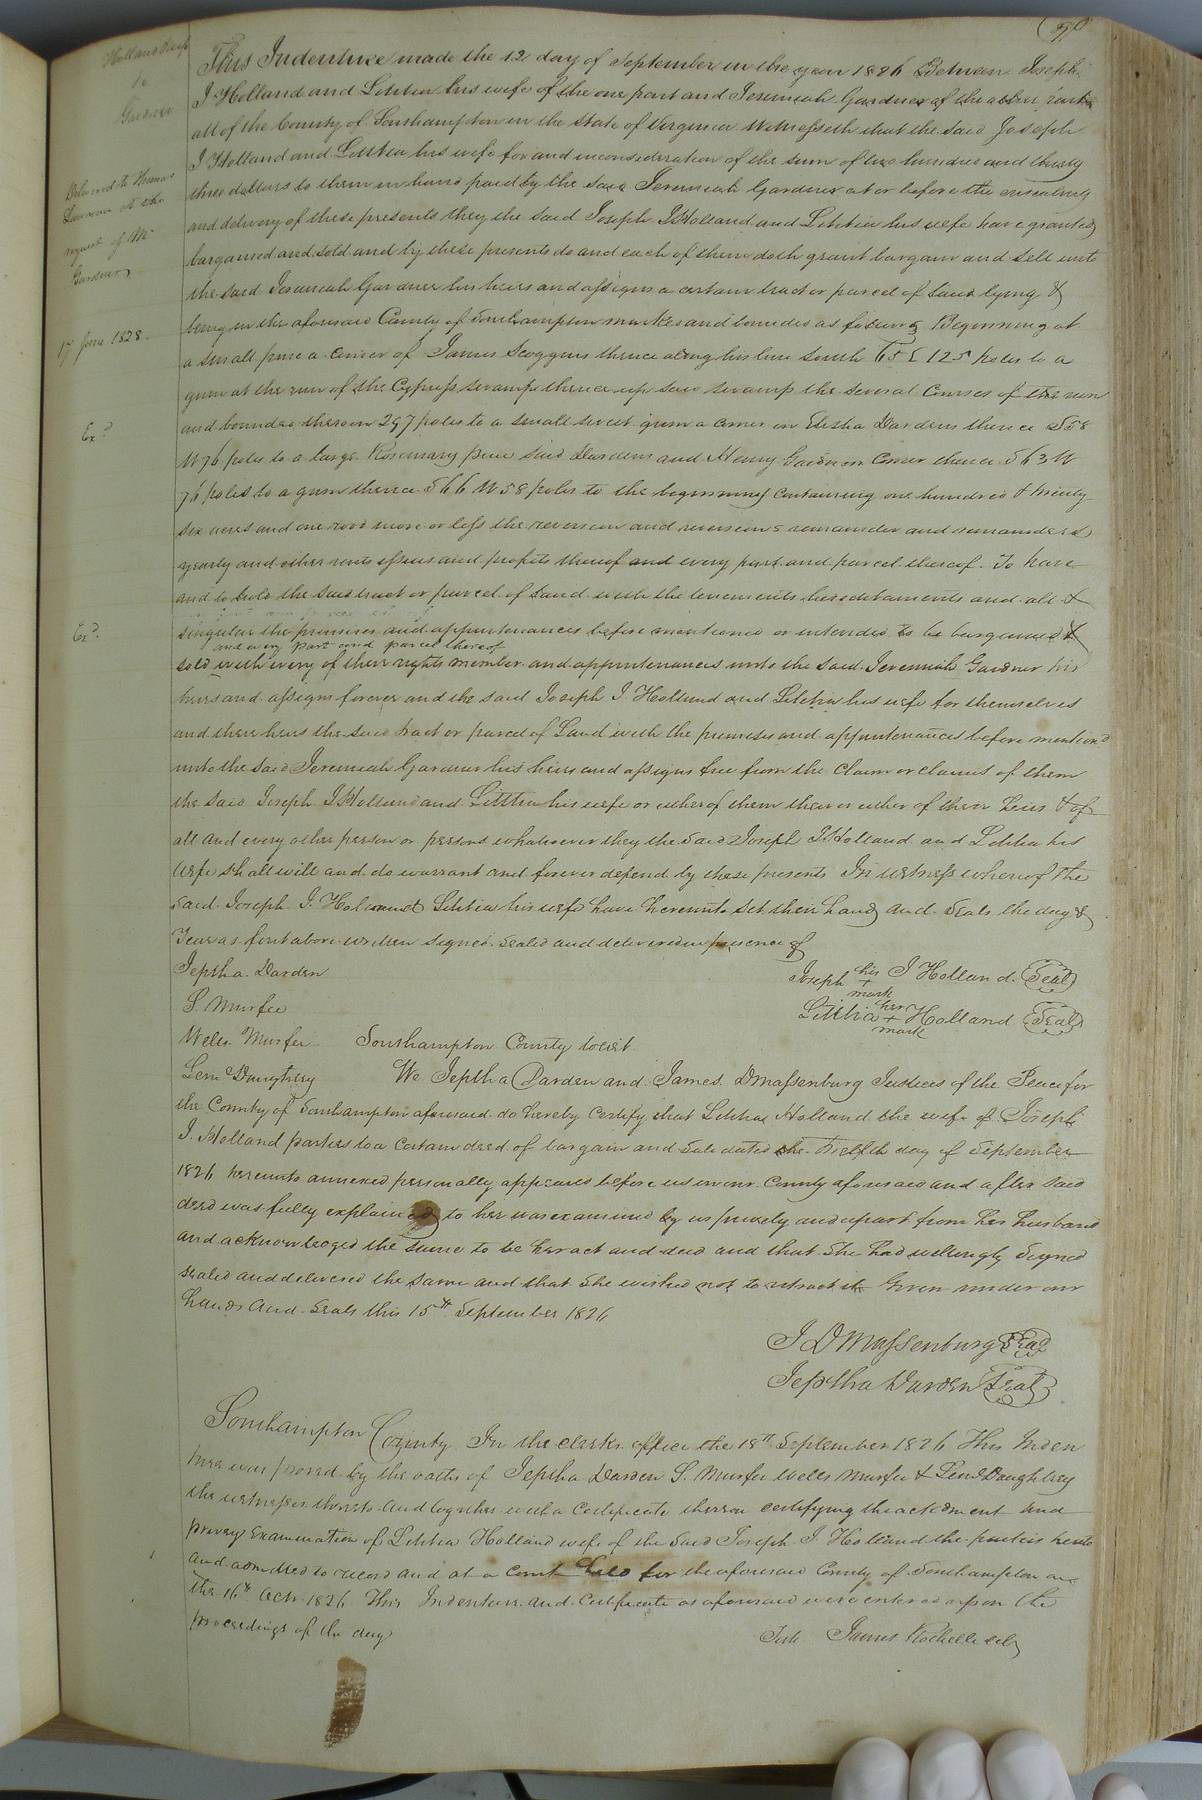 Holland &c
to
Gardner
Delivered to Thomas
at the
request of Mr
Gardner
17 June 1828
Exd
Exd
This Indenture made the 12 day of September in the year 1826 Between Joseph
J Holland and Letitia his wife of the one part and Jeremiah Gardner of the other part
all of the County of Southampton in the State of Virginia Witnesseth that the said Joseph
J Holland and Letitia his wife for and inconsideration of the sum of two hundred and thirty
three dollars to them in hand paid by the said Jeremiah Gardner at or before the ensealing
and delivery of these presents they the said Joseph J Holland and Letitia his wife have granted
bargained and sold and by these presents do and each of them doth grant bargain and sell unto
the said Jeremiah Gardner his heirs and assigns a certain tract or parcel of Land lying &
being in the aforesaid County of Southampton marked and bounded as follows Beginning at
a small pine a corner of James Scoggins thence along his line South 65 E 125 poles to a
gum at the run of the Cypress swamp thence up said swamp the several courses of the run
and bounded thereon 297 poles to a small sweet gum a corner on Elisha Dardens thence S 58
W 76 poles to a large Rosemary pine said Dardens and Henry Gardner corner thence S 63 W
76 poles to a gum thence S 66 W 58 poles to the beginning Containing one hundred & twenty
six acres and one rood more or less the reversion and reversions remainder and remainders
yearly and other rents issues and profits thereof and every part and parcel thereof. To have
and to hold the said tract or parcel of Land with the tenements hereditaments and all &
singular the premises and appurtenances before mentioned or intended to be bargained &
and every part and parcel thereof
sold with every of their rights member and appurtenances unto the said Jeremiah Gardner his
heirs and assigns forever and the said Joseph J. Holland and Letitia his wife for themselves
and their heirs the said tract or parcel of Land with the premises and appurtenances before mentiond
unto the said Jeremiah Gardner his heirs and assigns free from the claim or claims of them
the said Joseph J Holland and Letitia his wife or either of them their or either of their heirs & of
all and every other person or persons whatsoever they the said Joseph J Holland and Letitia his
wife shall will and do warrant and forever defend by these presents In witness whereof the
said Joseph J. Holland Letitia his wife have hereunto set their hand and seals the day &
Year as first above written signed sealed and delivered in presence of
Jeptha Darden
Joseph his J Holland Seal
+
mark
S. Murfee
Letitia her Holland Seal
+
mark
Wells Murfee Southampton County towit
Lem Daughtrey We Jeptha Darden and James D Massenburg Justices of the Peace for
the County of Southampton aforesaid do hereby certify that Letitia Holland the wife of Joseph
J. Holland parties to a certain deed of bargain and sale dated the twelfth day of September
1826 hereunto annexed personally appeared before us in our County aforesaid and after said
deed was fully explained to her was examined by us privily and apart from her husband
and acknowledged the same to be her act and deed and that she had willingly signed
sealed and delivered the same and that she wished not to retract it Given under our
hands and seals this 15th September 1826
J D Massenburg Seal
Jeptha Darden Seal
Southampton County In the clerks office the 18th September 1826 This Inden
ture was proved by the oaths of Jeptha Darden S. Murfee Wells Murfee & Lem Daughtrey
the witnesses thereto and together with a Certificate thereon certifying the ackdment and
privy Examination of Letitia Holland wife of the said Joseph J. Holland the parties hereto
and admitted to record and at a court held for the aforesaid County of Southampton on
the 16th Octr 1826 This Indenture and Certificate as aforesaid were entered upon the
proceedings of the day
Teste James Rochelle clk